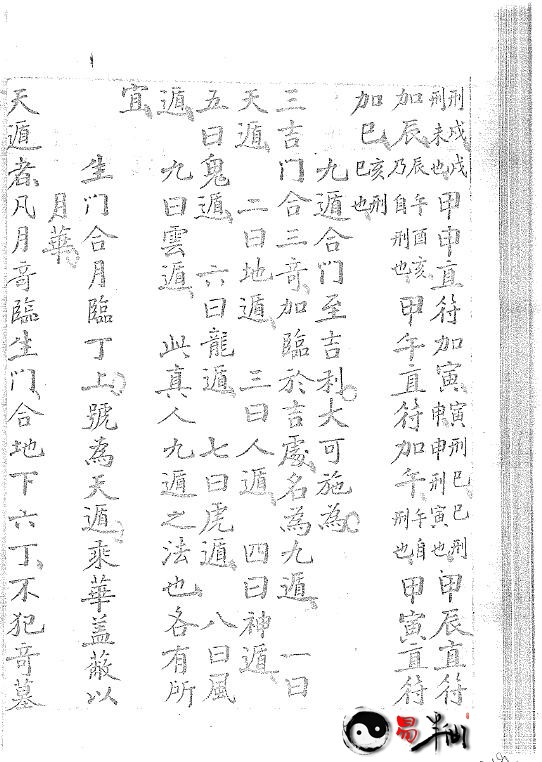 刑戌戌刑未也甲申直符加寅寅刑巳巳刑申申刑寅也甲辰直符
加辰辰午酉亥乃自刑也甲午直符加午午自刑也甲寅直符
加巳亥刑巳也
九遁合门至吉利大可施為
三吉门合三奇加臨於吉處名為九遁 一曰
天遁 二曰地遁 三曰人遁 四曰神遁
五曰鬼遁 六曰龍遁 七曰虎遁 八曰風
遁 九曰雲遁 此真人九遁之法也各有所
宜
生门合月臨丁上號為天遁乘華盖蔽以
月華
天遁者凡月奇臨生门合地下六丁不犯奇墓
易半仙